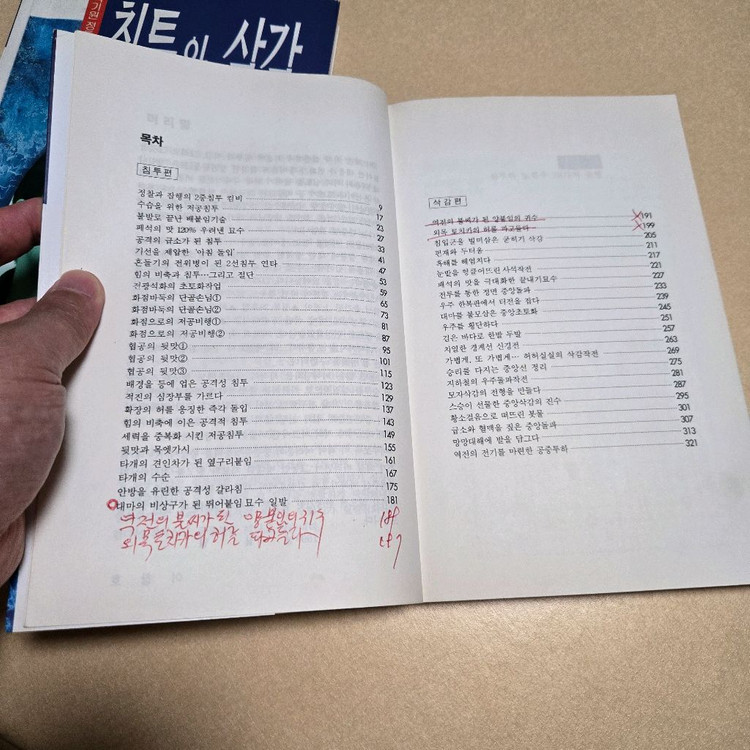 기원 정
침투와 삭감
목차
침투편
정찰과 집행의 2중침투 컴비 9
수습을 위한 저공침투 17
불발로 끝난 배붙임기술 23
폐석의 맛 120% 우려낸 묘수 27
공격의 급소가 된 침투 33
기선을 제압한 '아침 돌입' 41
흔들기의 전위병이 된 2선침투 연타 47
힘의 비축과 침투…그리고 절단 53
전광석화의 초토화작업 59
화점바둑의 단골손님① 65
화점바둑의 단골손님② 73
화점으로의 저공비행① 81
화점으로의 저공비행② 87
협공의 뒷맛① 95
협공의 뒷맛② 101
협공의 뒷맛③ 115
배경을 등에 업은 공격성 침투 123
적진의 심장부를 가르다 129
확장의 허를 응징한 즉각 돌입 137
힘의 비축에 이은 공격적 침투 143
세력을 중복화 시킨 저공침투 149
뒷맛과 목엣가시 155
타개의 견인차가 된 옆구리붙임 161
타개의 수순 167
안방을 유린한 공격성 갈라침 175
대마의 비상구가 된 뛰어붙임 묘수 일발 181
역전의 불씨가 된 양붙임의 귀수
외목 토치카의 허를 파고들다
삭감편
역전의 불씨가 된 양붙임의 귀수 191
외목 토치카의 허를 파고들다 199
침입군을 볼모삼은 굳히기 삭감 205
편재와 두터움 211
후배를 헤엄치다 217
눈발을 헝클어뜨린 사석작전 221
폐석의 맛을 극대화한 끝내기묘수 227
전투를 통한 정면 중앙돌파 233
우주 한복판에서 터전을 잡다 239
대마를 볼모삼은 중앙초토화 245
우주를 횡단하다 251
깊은 바다로 한발 두발 257
치열한 경계선 신경전 263
가볍게, 또 가볍게… 허허실실의 삭감작전 269
승리를 다지는 중앙선 정리 275
지하철의 우주돌파작전 281
모자삭감의 전형을 만들다 287
스승이 선물한 중앙삭감의 진수 295
황소걸음으로 떠뜨린 봇물 301
급소와 혈맥을 짚은 중앙돌파 307
망망대해에 발을 담그다 313
역전의 전기를 마련한 공중투하 321